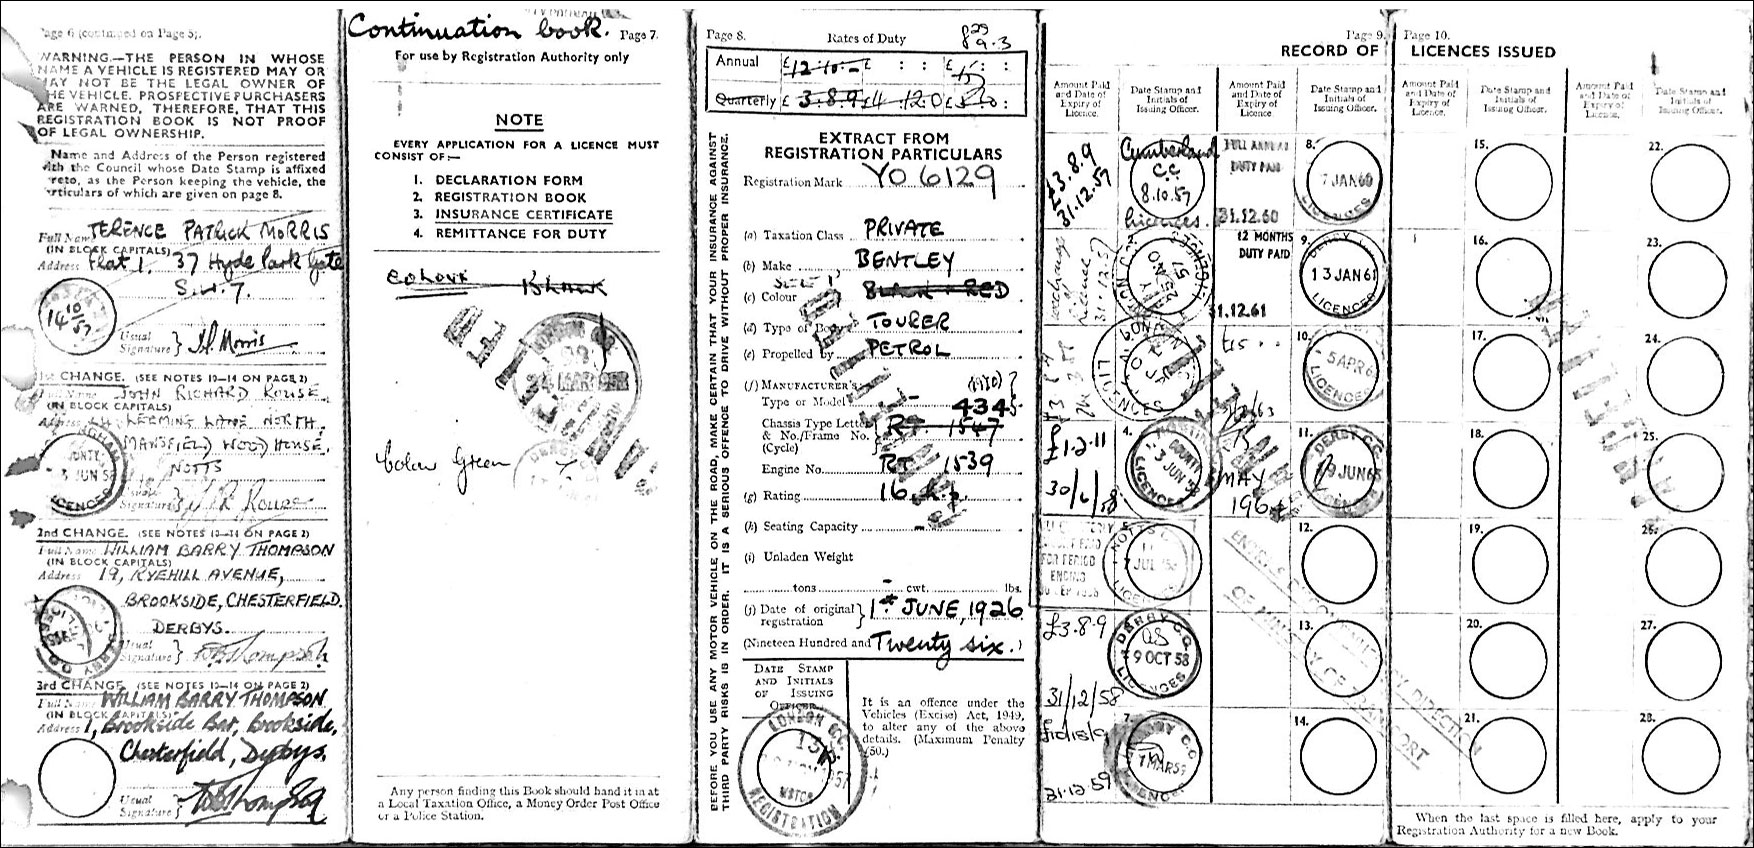 Page 6 (continued on Page 5).
WARNING.—THE PERSON IN WHOSE
NAME A VEHICLE IS REGISTERED MAY OR
MAY NOT BE THE LEGAL OWNER OF
THE VEHICLE. PROSPECTIVE PURCHASERS
ARE WARNED, THEREFORE, THAT THIS
REGISTRATION BOOK IS NOT PROOF
OF LEGAL OWNERSHIP.
Name and Address of the Person registered
with the Council whose Date Stamp is affixed
hereto, as the Person keeping the vehicle, the
particulars of which are given on page 8.
Full Name TERENCE PATRICK MORRIS
(IN BLOCK CAPITALS)
Address Flat 1, 37 Hyde Park Gate
S.W.7.
14 10/57
Usual Signature } T.P. Morris
1st CHANGE. (SEE NOTES 10—14 ON PAGE 2)
Full Name JOHN RICHARD ROUSE
(IN BLOCK CAPITALS)
Address LEEMING LANE NORTH,
MANSFIELD WOODHOUSE,
NOTTS
3 JUN 58
LICENCES
Usual Signature } J R Rouse
2nd CHANGE. (SEE NOTES 10—14 ON PAGE 2)
Full Name WILLIAM BARRY THOMPSON
(IN BLOCK CAPITALS)
Address 19, RYEHILL AVENUE,
BROOKSIDE, CHESTERFIELD.
DERBYS.
Usual Signature } W B Thompson
3rd CHANGE. (SEE NOTES 10—14 ON PAGE 2)
Full Name WILLIAM BARRY THOMPSON
(IN BLOCK CAPITALS)
Address 1, Brookside Bar, Brookside,
Chesterfield, Derbys.
Usual Signature } W B Thompson
Continuation book. Page 7.
For use by Registration Authority only
NOTE
EVERY APPLICATION FOR A LICENCE MUST
CONSIST OF:—
1. DECLARATION FORM
2. REGISTRATION BOOK
3. INSURANCE CERTIFICATE
4. REMITTANCE FOR DUTY
Colour Black
LONDON CC
24 MAR 1958
Colour Green
DERBY C.C.
Any person finding this Book should hand it in at
a Local Taxation Office, a Money Order Post Office
or a Police Station.
Page 8. Rates of Duty
Annual £12·10·- £ : : £15: :
Quarterly £3·8·9 £4·12·0 £
BEFORE YOU USE ANY MOTOR VEHICLE ON THE ROAD, MAKE CERTAIN THAT YOUR INSURANCE AGAINST
THIRD PARTY RISKS IS IN ORDER. IT IS A SERIOUS OFFENCE TO DRIVE WITHOUT PROPER INSURANCE.
EXTRACT FROM
REGISTRATION PARTICULARS
Registration Mark YO 6129
(a) Taxation Class PRIVATE
(b) Make BENTLEY
(c) Colour BLACK & RED
(d) Type of Body TOURER
(e) Propelled by PETROL
(f) MANUFACTURER'S
Type or Model 4345
Chassis Type Letter
& No./Frame No. RT 1547
(Cycle)
Engine No. RT 1539
(g) Rating 16 h.p.
(h) Seating Capacity
(i) Unladen Weight
tons - cwt. lbs.
(j) Date of original
registration } 1st JUNE, 1926
(Nineteen Hundred and Twenty six.)
DATE STAMP
AND INITIALS
OF ISSUING
OFFICER
LONDON CC.
MOTOR
REGISTRATION
It is an offence under the
Vehicles (Excise) Act, 1949,
to alter any of the above
details. (Maximum Penalty
£50.)
Page 9. Page 10.
RECORD OF LICENCES ISSUED
Amount Paid and Date of Expiry of Licence.
Date Stamp and Initials of Issuing Officer.
Amount Paid and Date of Expiry of Licence.
Date Stamp and Initials of Issuing Officer.
Amount Paid and Date of Expiry of Licence.
Date Stamp and Initials of Issuing Officer.
Amount Paid and Date of Expiry of Licence.
Date Stamp and Initials of Issuing Officer.
£3.8.9
31.12.57
Cumberland
C.C.
8.10.57
Licences.
exchange
of
licence
31.12.57
2.
4.
£1·2·11
30/6/58
COUNTY
3 JUN 58
LICENCES
NOTTS C.C.
7 JUL 58
LICENCES
£3·8·9
31/12/58
DERBY C.C.
9 OCT 58
LICENCES
31·12·59
7.
DERBY C.C.
MAR 59
FULL ANNUAL
DUTY PAID
31.12.60
8.
7 JAN 60
LICENCES
12 MONTHS
DUTY PAID
31.12.61
9.
DERBY C.C.
13 JAN 61
LICENCES
£15 · ·
10.
5 APR 6
LICENCES
MAY
11.
DERBY C.C.
9 JUN 65
12.
13.
14.
15.
16.
17.
18.
19.
20.
21.
22.
23.
24.
25.
26.
27.
28.
When the last space is filled here, apply to your
Registration Authority for a new Book.